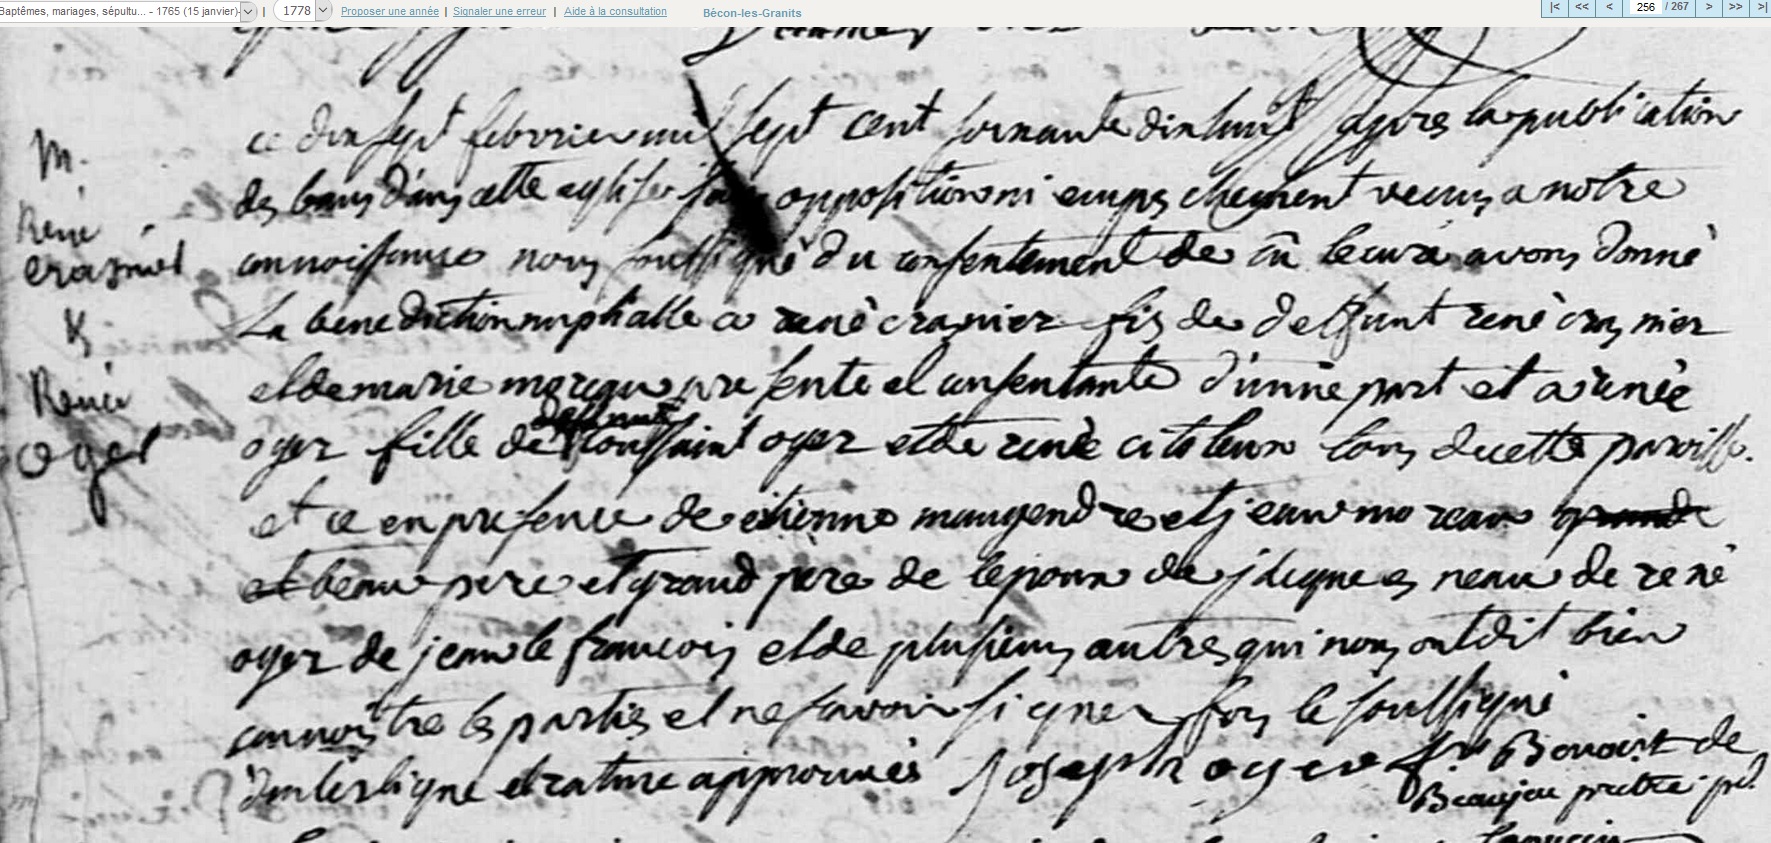 Baptêmes, mariages, sépultu... - 1765 (15 janvier)- | 1778 | Proposer une année | Signaler une erreur | Aide à la consultation Bécon-les-Granits |< << < 256 / 267 > >> >|
ce dix sept febvrier mil sept cent soixante dix huit apres la publication
des bans dans cette eglise sans opposition ni empeschement venus a notre
connoissance nous soussigné du consentement de le curé avons donné
La benediction nuptialle a rené crasnier fis de deffunt rené crasnier
et de marie moreau presente et consentante d'unne part et a renée
oger fille de deffunt toussaint oger et de renée citoleux tous de cette paroisse.
et ce en presence de etienne maugendre et jean moreau grand
et beau pere et grand pere de lepoux de jacques neau de rené
oger de jean le francois et de plusieurs autres qui nous ont dit bien
connoistre les parties et ne savoir signer fors le soussigné
interligne et rature approuvés Joseph oger fr Benoist de
Beaujeu pretre
M.
René
crasnier
&
Renée
Oger